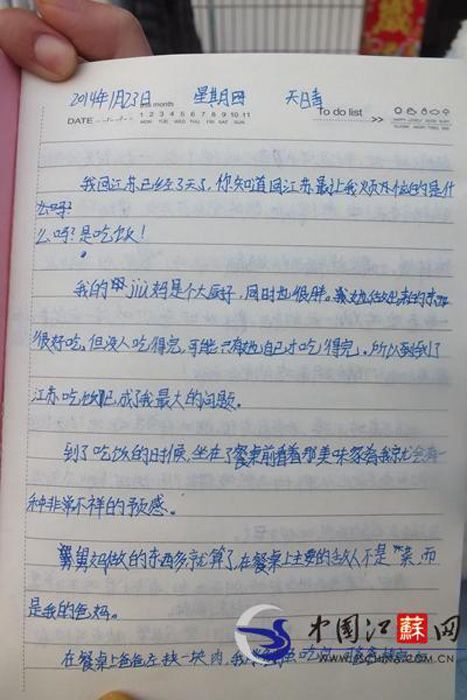 2014年1月23日 星期四 天晴
month
DATE
1 2 3 4 5 6 7 8 9 10 11
MON TUE WED THU FRI SAT SUN
To do list >>
我回江苏已经3天了,你知道回江苏最让我烦恼的是什
么吗?
么吗?是吃饭!
我的 jiu妈是个大厨子,同时也很胖。她做出来的东西
很好吃,但没人吃得完,可能只有她自己才吃得完,所以到了
江苏吃饭已成了我最大的问题。
到了吃饭的时候,坐在了餐桌前看着那美味家肴我就会有一
种非常不祥的预感。
舅妈做的东西多就算了,在餐桌上主要的敌人不是“菜,而
是我的爸妈。
在餐桌上爸爸左挟一块肉,我
中国江蘇网